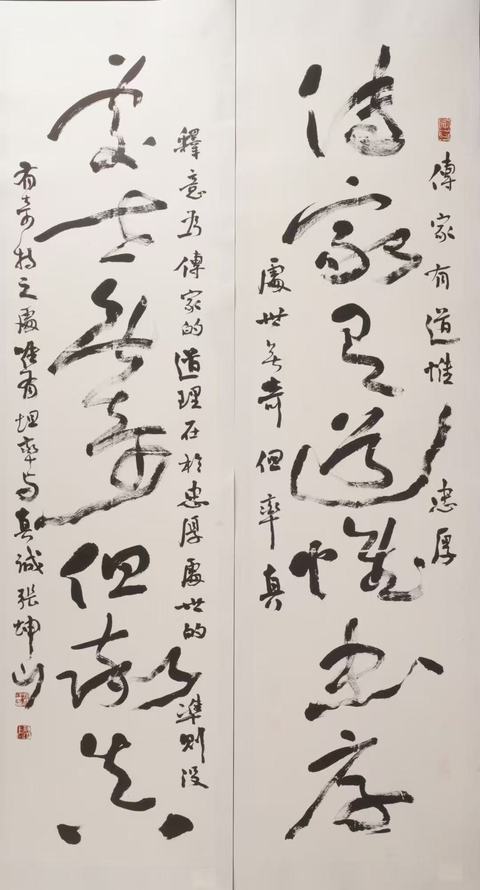 傳家有道惟忠厚
傳家有道惟忠厚
處世無奇但率真
釋意为傳家的道理在於忠厚處世的準则没
處世無奇但率真
有奇特之處唯有坦率与真誠張坤山